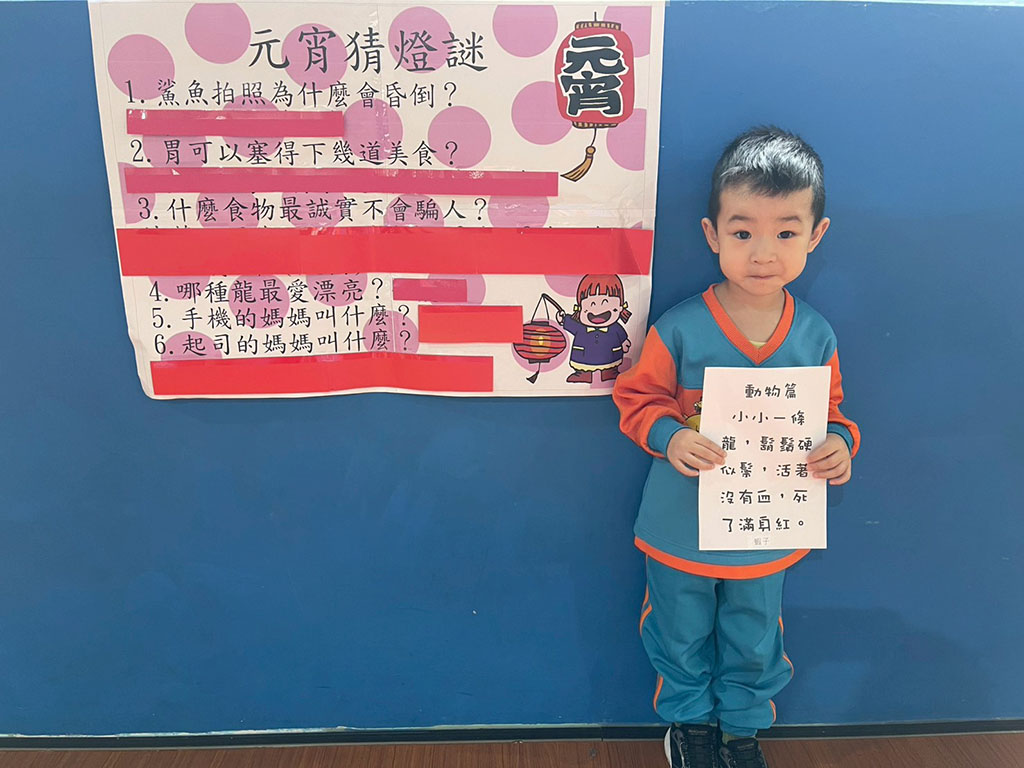 元宵猜燈謎
元宵
1. 鯊魚拍照為什麼會昏倒？
2. 胃可以塞得下幾道美食？
3. 什麼食物最誠實不會騙人？
4. 哪種龍最愛漂亮？
5. 手機的媽媽叫什麼？
6. 起司的媽媽叫什麼？
動物篇
小小一條
龍，鬍鬚硬
似鬃，活著
沒有血，死
了滿身紅。
蝦子